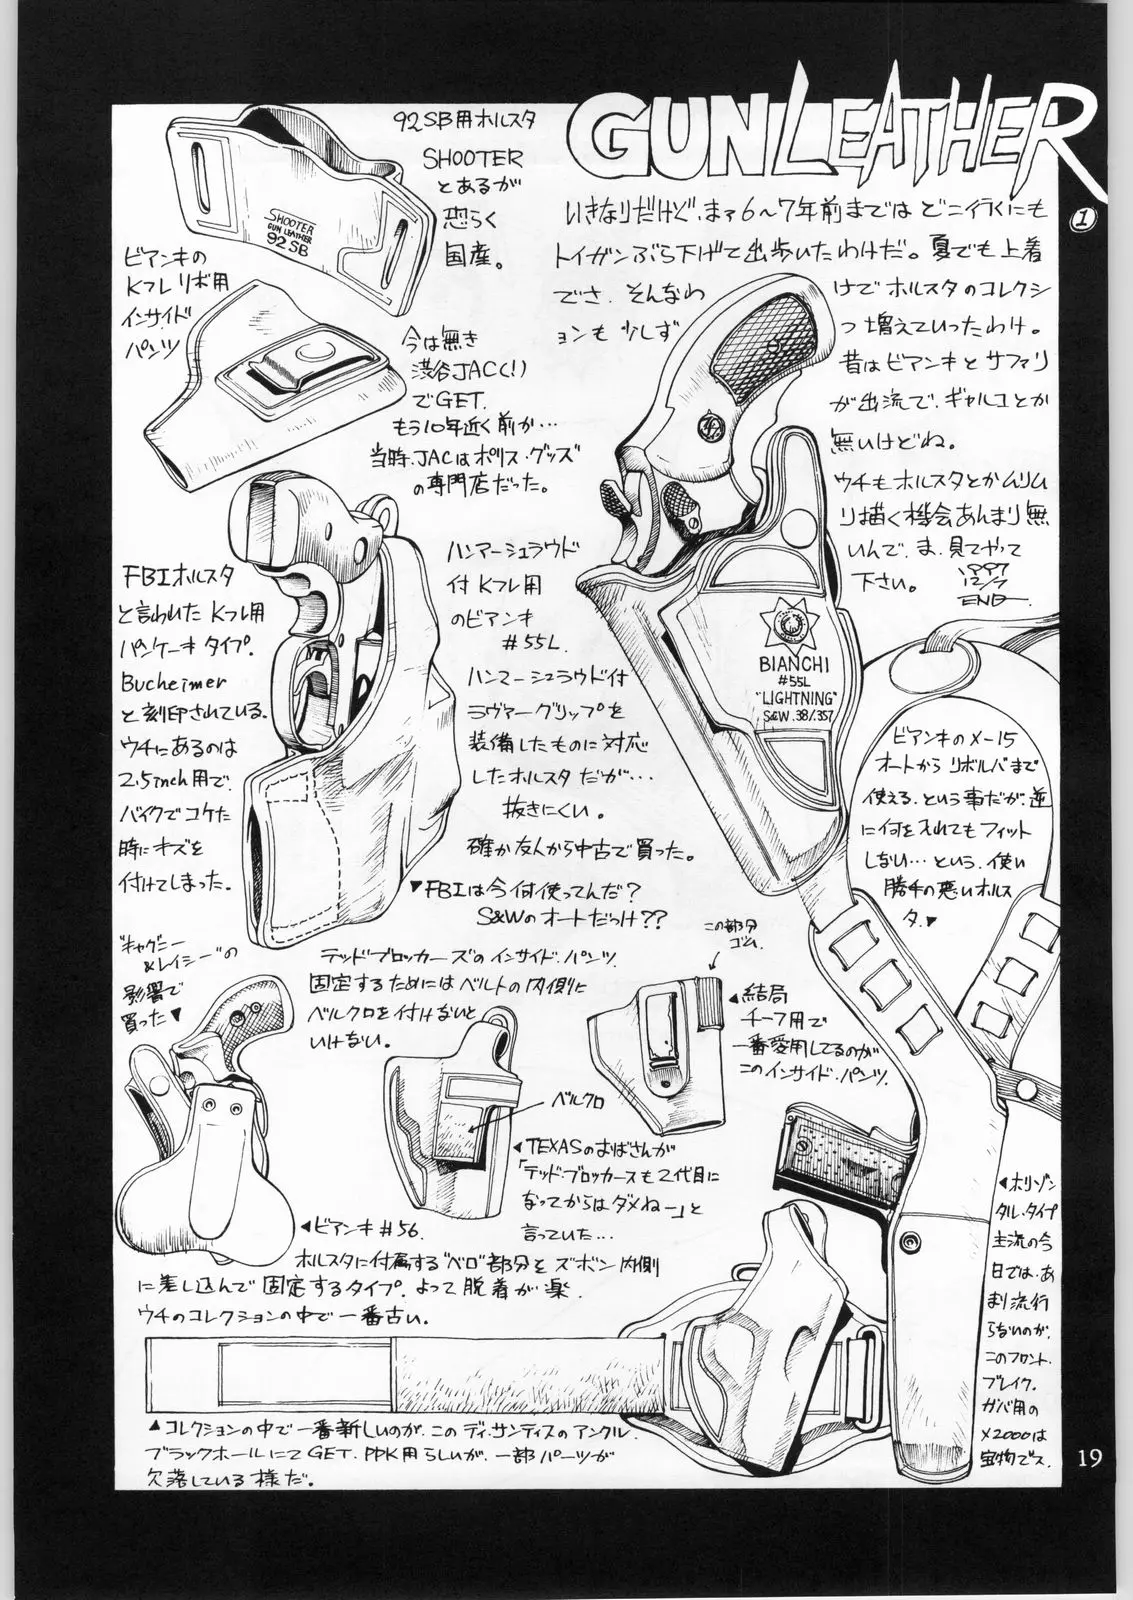 GUNLEATHER
①
いきなりだけど、まァ6〜7年前まではどこ行くにも
トイガンぶら下げて出歩いたわけだ。夏でも上着
でさ、そんなわけでホルスタのコレクシ
ョンも少しずつ増えていったわけ。
昔はビアンキとサファリ
が出流で、ギャルコとか
無いけどね。
ウチもホルスタとかムリム
リ描く機会あんまり無
いんで、ま、見てやって
下さい。
1997
12/7
END
92SB用ホルスタ
SHOOTER
とあるが
恐らく
国産。
SHOOTER
GUN LEATHER
92SB
ビアンキの
Kフレリボ用
インサイド
パンツ
今は無き
渋谷JAC(!)
でGET.
もう10年近く前か…
当時、JACはポリス・グッズ
の専門店だった。
FBIホルスタ
と言われたKフレ用
パンケーキタイプ.
Bucheimer
と刻印されている.
ウチにあるのは
2.5inch用で、
バイクでコケた
時にキズを
付けてしまった。
ハンマーシュラウド
付Kフレ用
のビアンキ
#55L.
ハンマーシュラウド付
ラヴァーグリップを
装備したものに対応
したホルスタだが…
抜きにくい。
確か友人から中古で買った。
▼FBIは今何使ってんだ?
S&Wのオートだっけ??
BIANCHI
#55L
"LIGHTNING"
S&W .38/.357
ビアンキのX-15
オートからリボルバまで
使える、という事だが、逆
に何を入れてもフィット
しない…という、使い
勝手の悪いホルス
タ.▼
"キャグニー
&レイシー"の
影響で
買った▼
テッド・ブロッカーズのインサイド・パンツ.
固定するためにはベルトの内側に
ベルクロを付けないと
いけない。
この部分
ゴム.
◀結局
チーフ用で
一番愛用してるのが
このインサイド・パンツ.
ベルクロ
◀TEXASのおばさんが
「テッド・ブロッカースも2代目に
なってからはダメねー」と
言っていた…
◀ビアンキ#56.
ホルスタに付属する"ベロ"部分をズボン内側
に差し込んで固定するタイプ.よって脱着が楽.
ウチのコレクションの中で一番古い.
◀ホリゾン
タル・タイプ
主流の今
日では、あ
まり流行
らないのが、
このフロント.
ブレイク.
ガバ用の
X2000は
宝物でス.
▲コレクションの中で一番新しいのが、このディ・サンティスのアンクル.
ブラックホールにてGET. PPK用らしいが、一部パーツが
欠落している様だ。
19